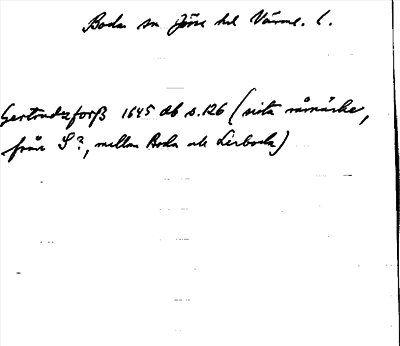 Boda sn Jösse hd Värml. l.
Gertrudzforß 1645 db s. 126 (sista råmärke,
från S?, mellan Boda och Lerboda)